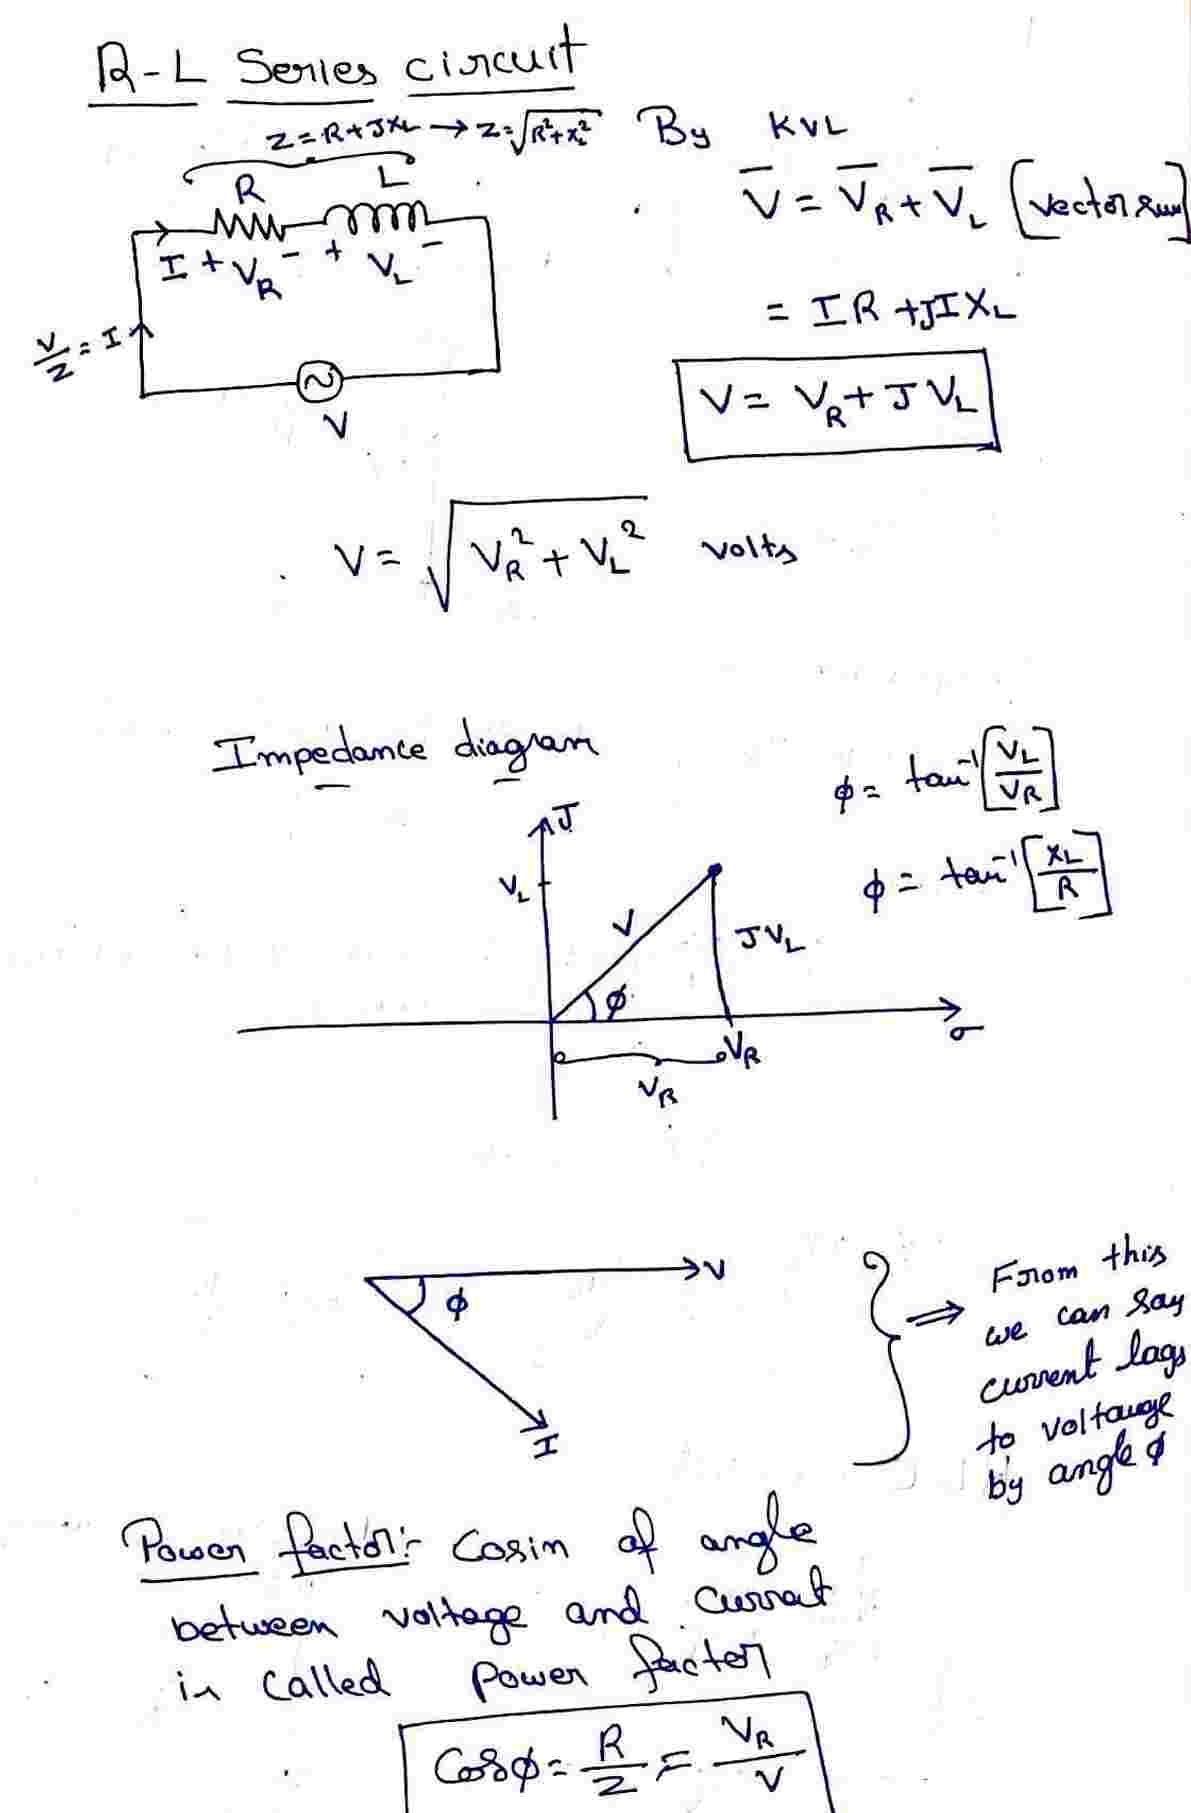 R-L Series circuit
Z=R+JXL → Z=√R²+XL²
By KVL
R L
V̅ = V̅R + V̅L [vector sum]
I + VR - + VL -
= IR + JIXL
V/Z = I
V = VR + J VL
V
V = √VR² + VL² volts
Impedance diagram
φ = tan⁻¹[VL/VR]
J
φ = tan⁻¹[XL/R]
VL
V
JVL
φ
σ
VR
VR
V
φ
I
⇒ From this
we can say
current lags
to voltauge
by angle φ
Power factor:- Cosin of angle
between voltage and currat
is called power factor
Cosφ = R/Z = VR/V